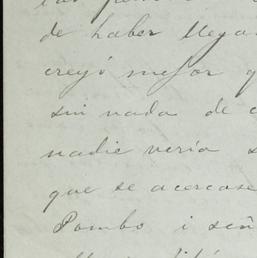 de haber llega
creyó mejor q
sin nada de c
nadie vería s
que se acercase
Pombo i señ